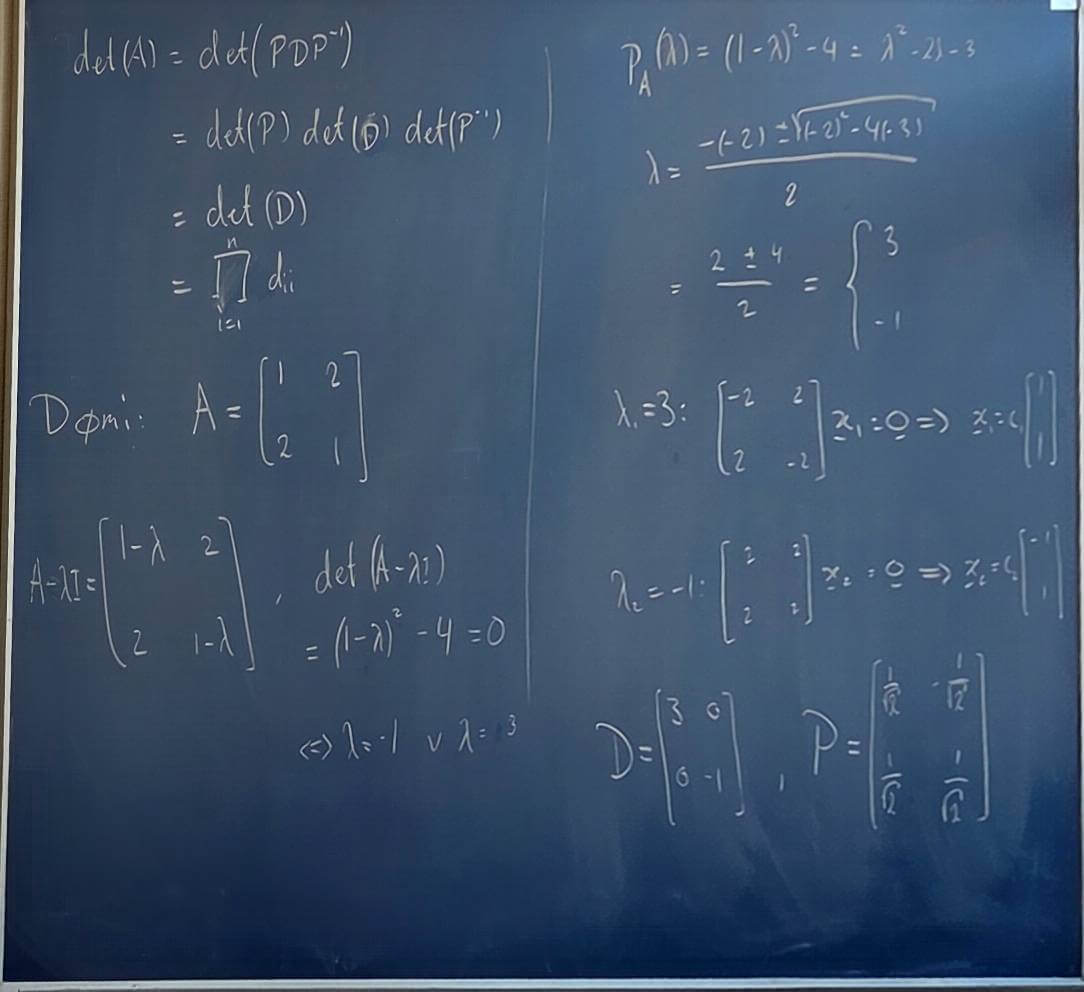 det(A) = det(PDP⁻¹)
= det(P) det(D) det(P⁻¹)
= det(D)
= ∏ᵢ₌₁ⁿ dᵢᵢ
Dømi: A = [1 2; 2 1]
A-λI = [1-λ 2; 2 1-λ], det(A-λI)
= (1-λ)² - 4 = 0
<=> λ = -1 ∨ λ = 3
P_A(λ) = (1-λ)² - 4 = λ² - 2λ - 3
λ = (-(-2) ± √((-2)² - 4(-3))) / 2
= (2 ± 4)/2 = { 3; -1
λ₁ = 3: [-2 2; 2 -2] x₁ = 0 => x₁ = c₁ [1; 1]
λ₂ = -1: [2 2; 2 2] x₂ = 0 => x₂ = c₂ [-1; 1]
D = [3 0; 0 -1], P = [1/√2 -1/√2; 1/√2 1/√2]